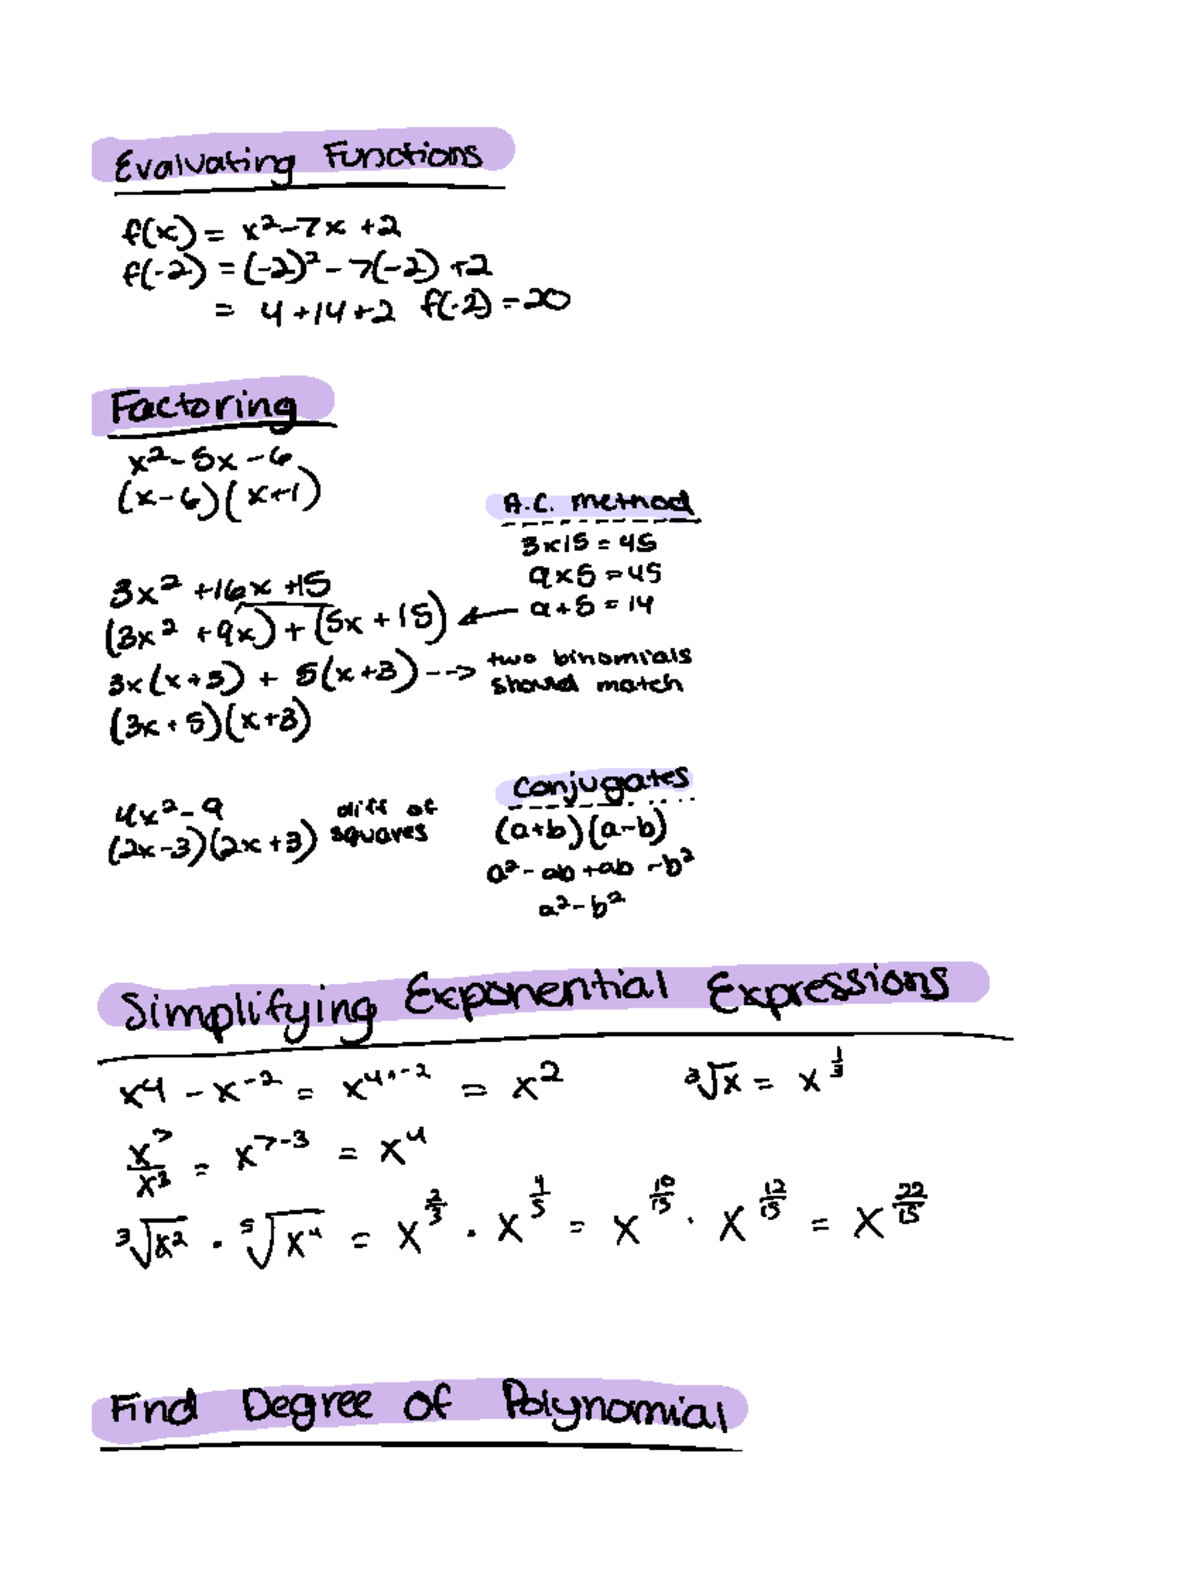 Evaluating Functions
f(x) = x²-7x +2
f(-2) = (-2)² - 7(-2) +2
= 4 +14+2 f(-2) = 20
Factoring
x²-5x-6
(x-6)(x+1)
A.C. method
3x15 = 45
9x5 = 45
9+5 = 14
3x² +16x +15
(3x² +9x) + (5x +15)
3x(x+3) + 5(x+3) --> two binomials
should match
(3x+5)(x+3)
4x²-9 diff of
(2x-3)(2x+3) squares
Conjugates
(a+b)(a-b)
a²-ab+ab-b²
a²-b²
Simplifying Exponential Expressions
x⁴ - x⁻² = x⁴⁺⁻² = x² ³√x = x^(1/3)
x⁷/x³ = x⁷⁻³ = x⁴
³√x² · ⁵√x⁴ = x^(2/3) · x^(4/5) = x^(10/15) · x^(12/15) = x^(22/15)
Find Degree of Polynomial